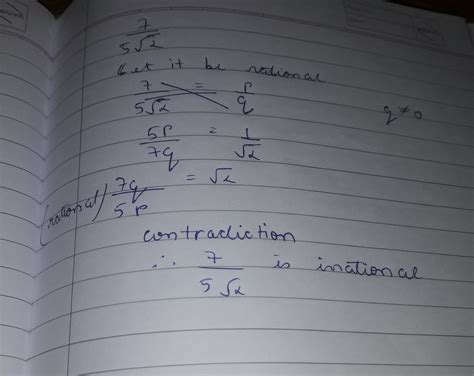 7/5√2
Let it be rational
7/5√2 = p/q q ≠ 0
5P/7q = 1/√2
(rational) 7q/5P = √2
contradiction
∴ 7/5√2 is irrational